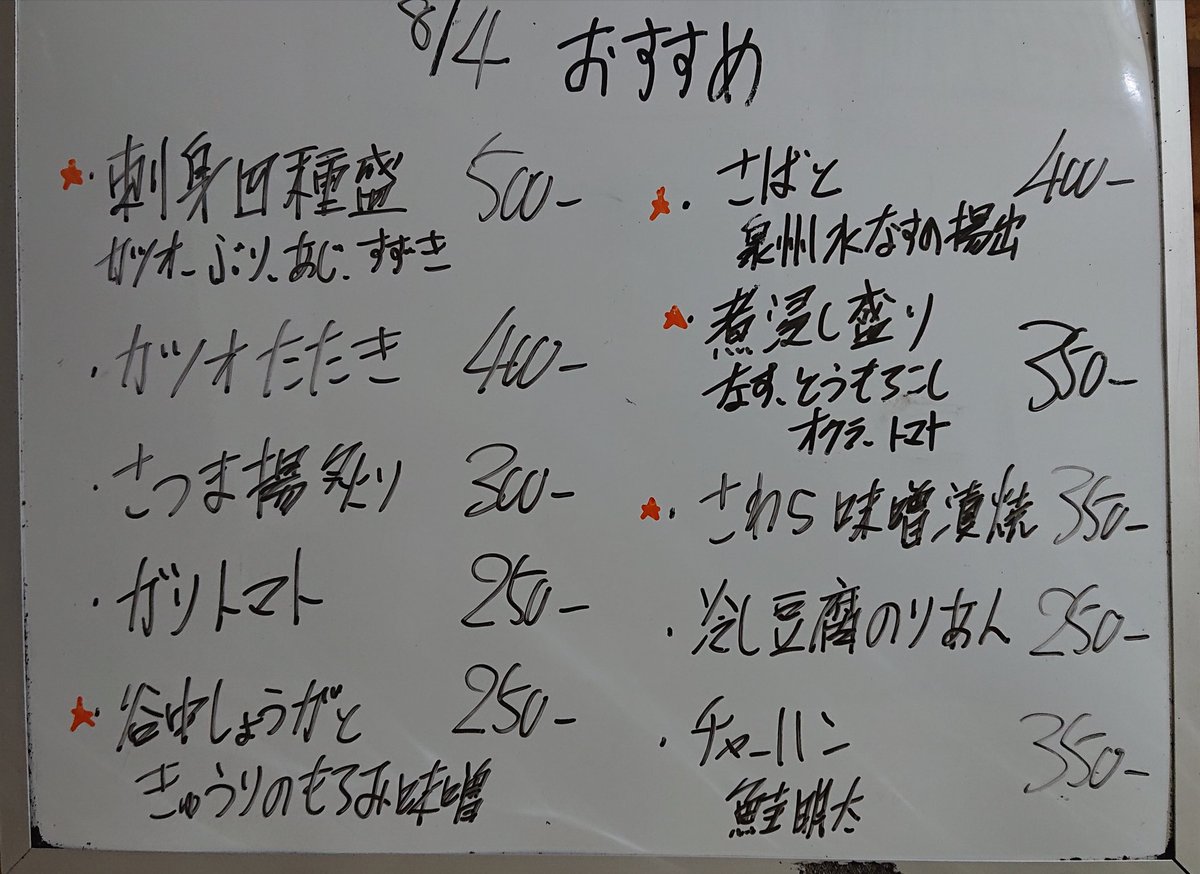 8/4 おすすめ
★・刺身四種盛 500-
カツオ、ぶり、あじ、すずき
・カツオたたき 400-
・さつま揚炙り 300-
・ガリトマト 250-
★・谷中しょうがと 250-
きゅうりのもろみ味噌
★・さばと 400-
泉州水なすの揚出
★・煮浸し盛り 350-
なす、とうもろこし
オクラ、トマト
★・さわら味噌漬焼 350-
・冷し豆腐のりあん 250-
・チャーハン 350-
鮭明太